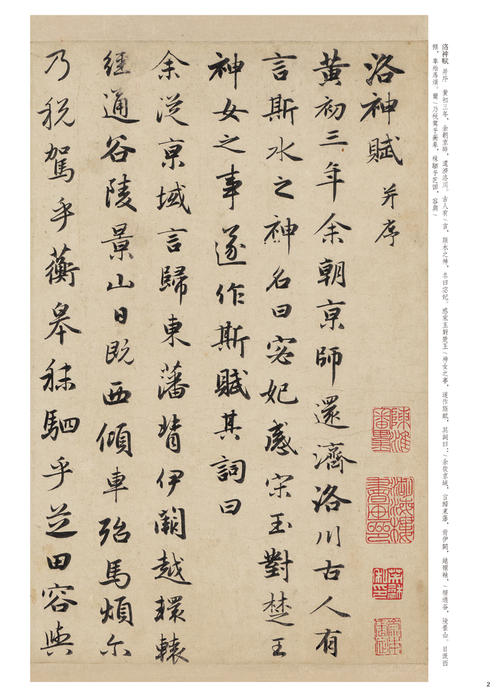 洛神賦 并序 黄初三年，余朝京師，還濟洛川。古人有/言，斯水之神，名曰宓妃。感宋玉對楚王/神女之事，遂作斯賦。其詞曰：/余從京域，言歸東藩，背伊闕，越轘轅，/經通谷，陵景山。日既西
傾，車殆馬煩。爾/乃税駕乎蘅皋，秣駟乎芝田，容與/
洛神賦 并序
黄初三年余朝京師還濟洛川古人有
言斯水之神名曰宓妃感宋玉對楚王
神女之事遂作斯賦其詞曰
余從京域言歸東藩背伊闕越轘轅
經通谷陵景山日既西傾車殆馬煩尒
乃税駕乎蘅皋秣駟乎芝田容與
2